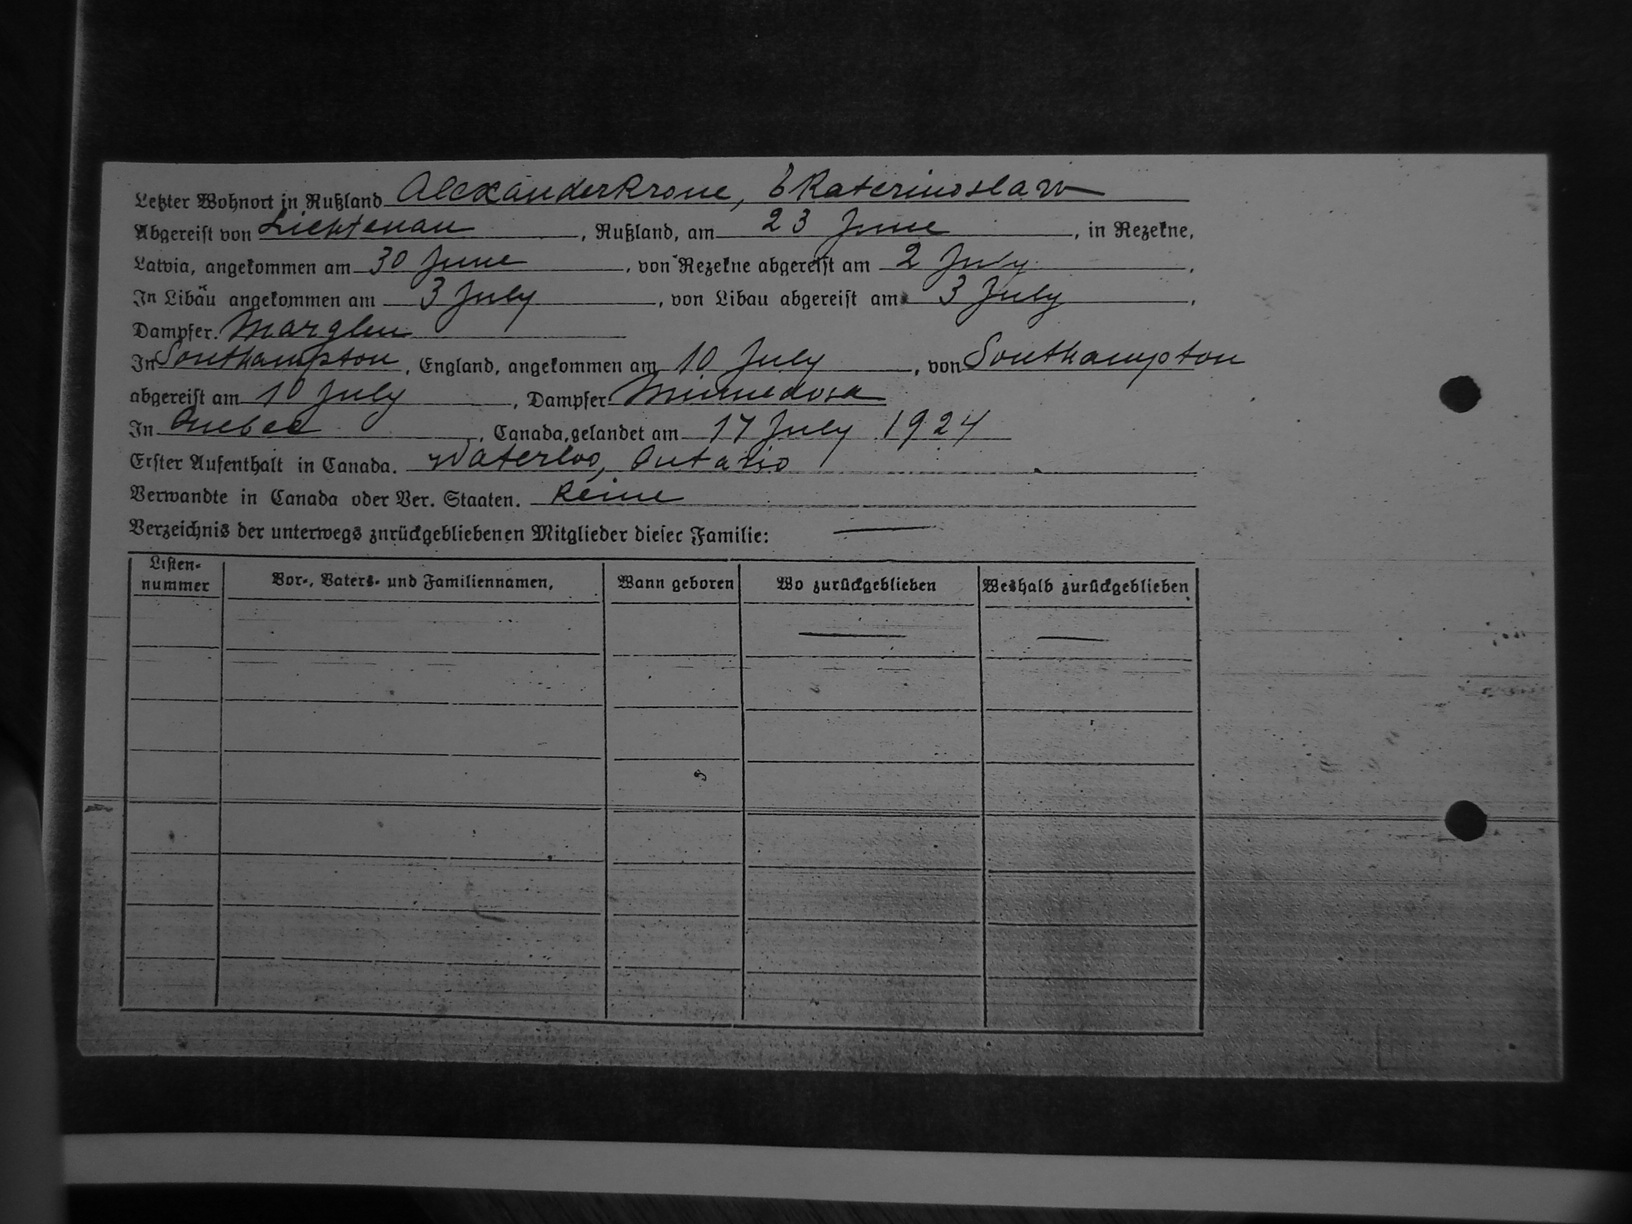 Letzter Wohnort in Rußland Alexanderkrone, Ekaterinoslaw
Abgereist von Lichtenau, Rußland, am 23 June, in Rezekne,
Latvia, angekommen am 30 June, von Rezekne abgereist am 2 July.
In Libau angekommen am 3 July, von Libau abgereist am 3 July.
Dampfer. Marglen
In Southampton, England, angekommen am 10 July, von Southampton
abgereist am 10 July, Dampfer Minnedosa
In Quebec, Canada, gelandet am 17 July 1924
Erster Aufenthalt in Canada. Waterloo, Ontario
Verwandte in Canada oder Ver. Staaten. Keine
Verzeichnis der unterwegs zurückgebliebenen Mitglieder dieser Familie: —
Listen-nummer Vor-, Vaters- und Familiennamen, Wann geboren Wo zurückgeblieben Weshalb zurückgeblieben
— —